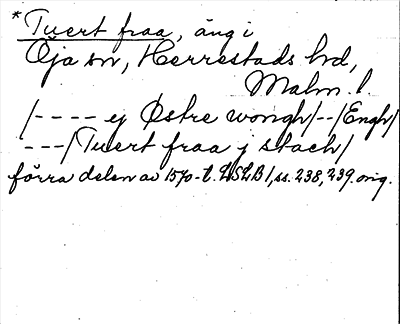 *Tvert fraa, äng i
Öja sn, Herrestads hd,
Malm. l.
/---- ej Østre wongh/--/Engh/
---/Tvert fraa j stach/
förra delen av 1570-t. LSLB 1, ss. 238, 239. orig.